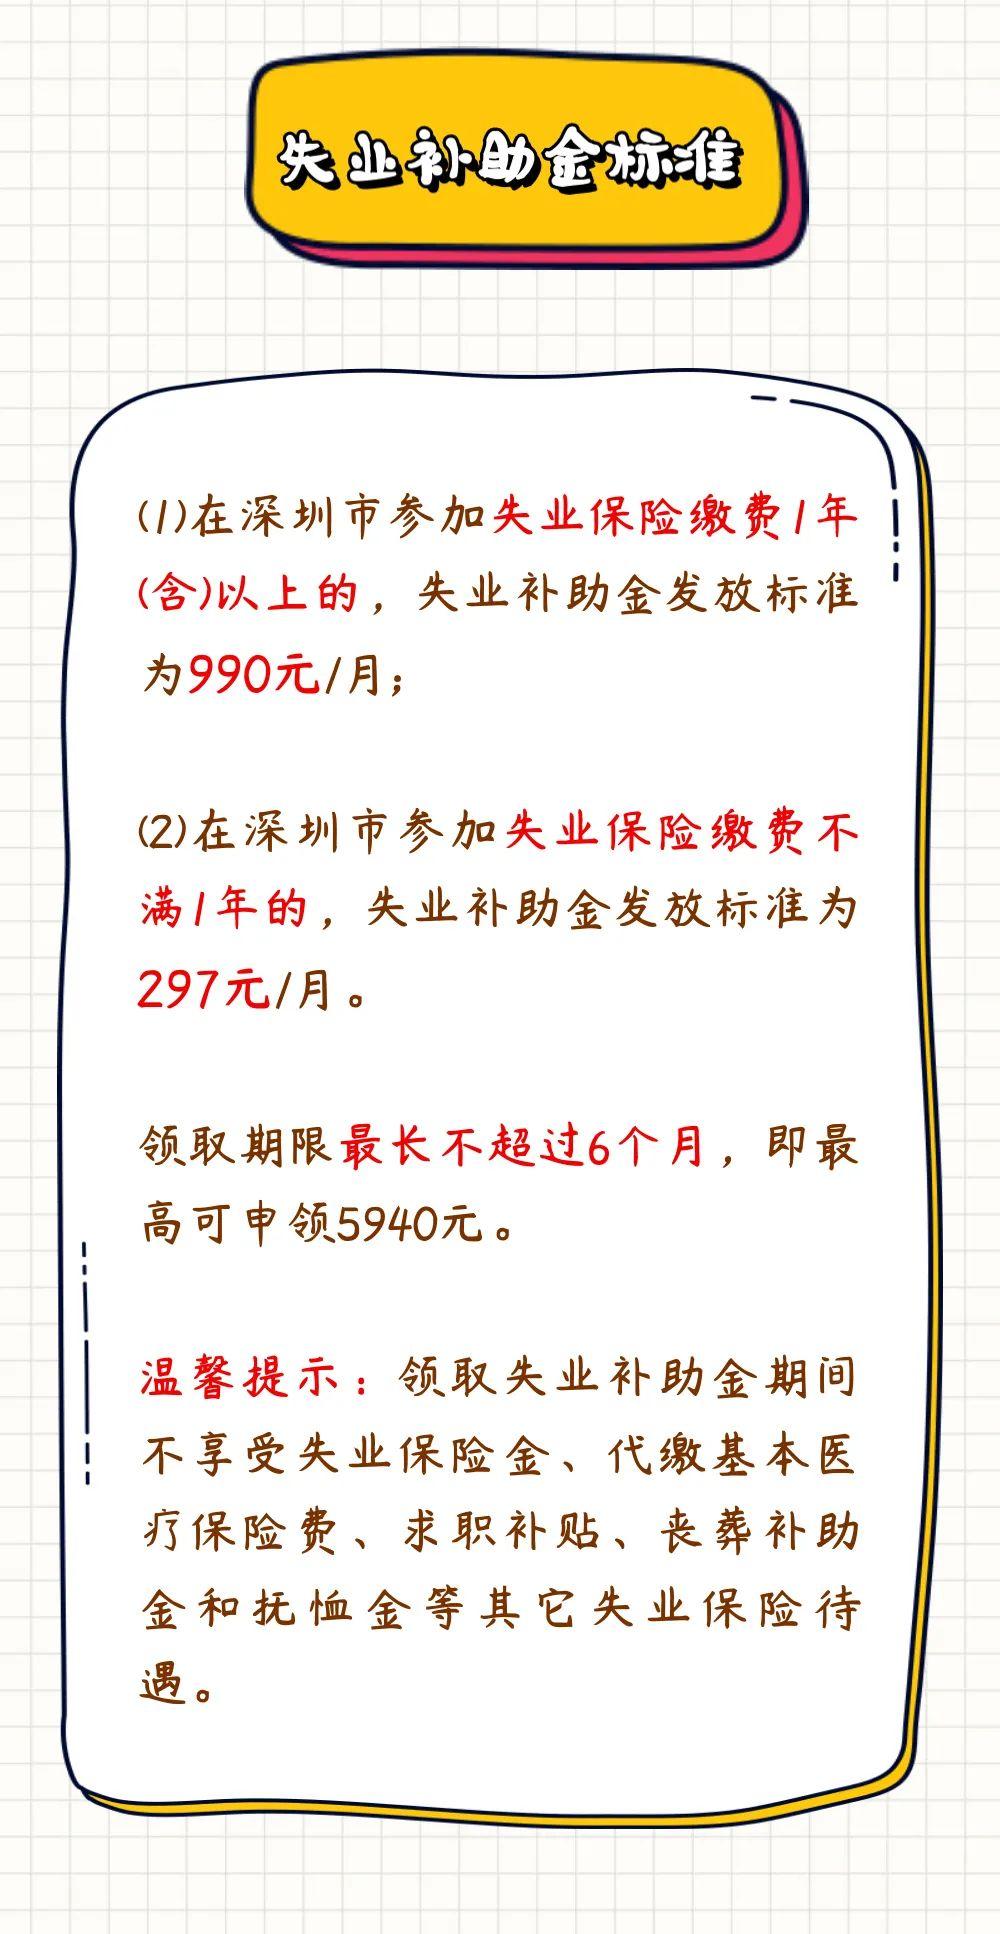 失业补助金标准
(1)在深圳市参加失业保险缴费1年
(含)以上的，失业补助金发放标准
为990元/月；
(2)在深圳市参加失业保险缴费不
满1年的，失业补助金发放标准为
297元/月。
领取期限最长不超过6个月，即最
高可申领5940元。
温馨提示：领取失业补助金期间
不享受失业保险金、代缴基本医
疗保险费、求职补贴、丧葬补助
金和抚恤金等其它失业保险待
遇。